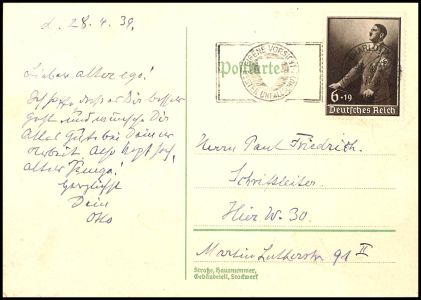 d. 28.4.39.
Lieber alter ego!
Ich hoffe, dass es Dir besser
geht und wünsche Dir
Alles Gute bei Deiner
Arbeit. Also Kopf hoch,
alter Junge!
Herzlichst
Dein
Otto
Postkarte
6+19
Deutsches Reich
Herrn Paul Friedrich.
Schriftleiter.
Hier W. 30.
Martin Lutherstr. 91 II
Straße, Hausnummer,
Gebäudeteil, Stockwerk